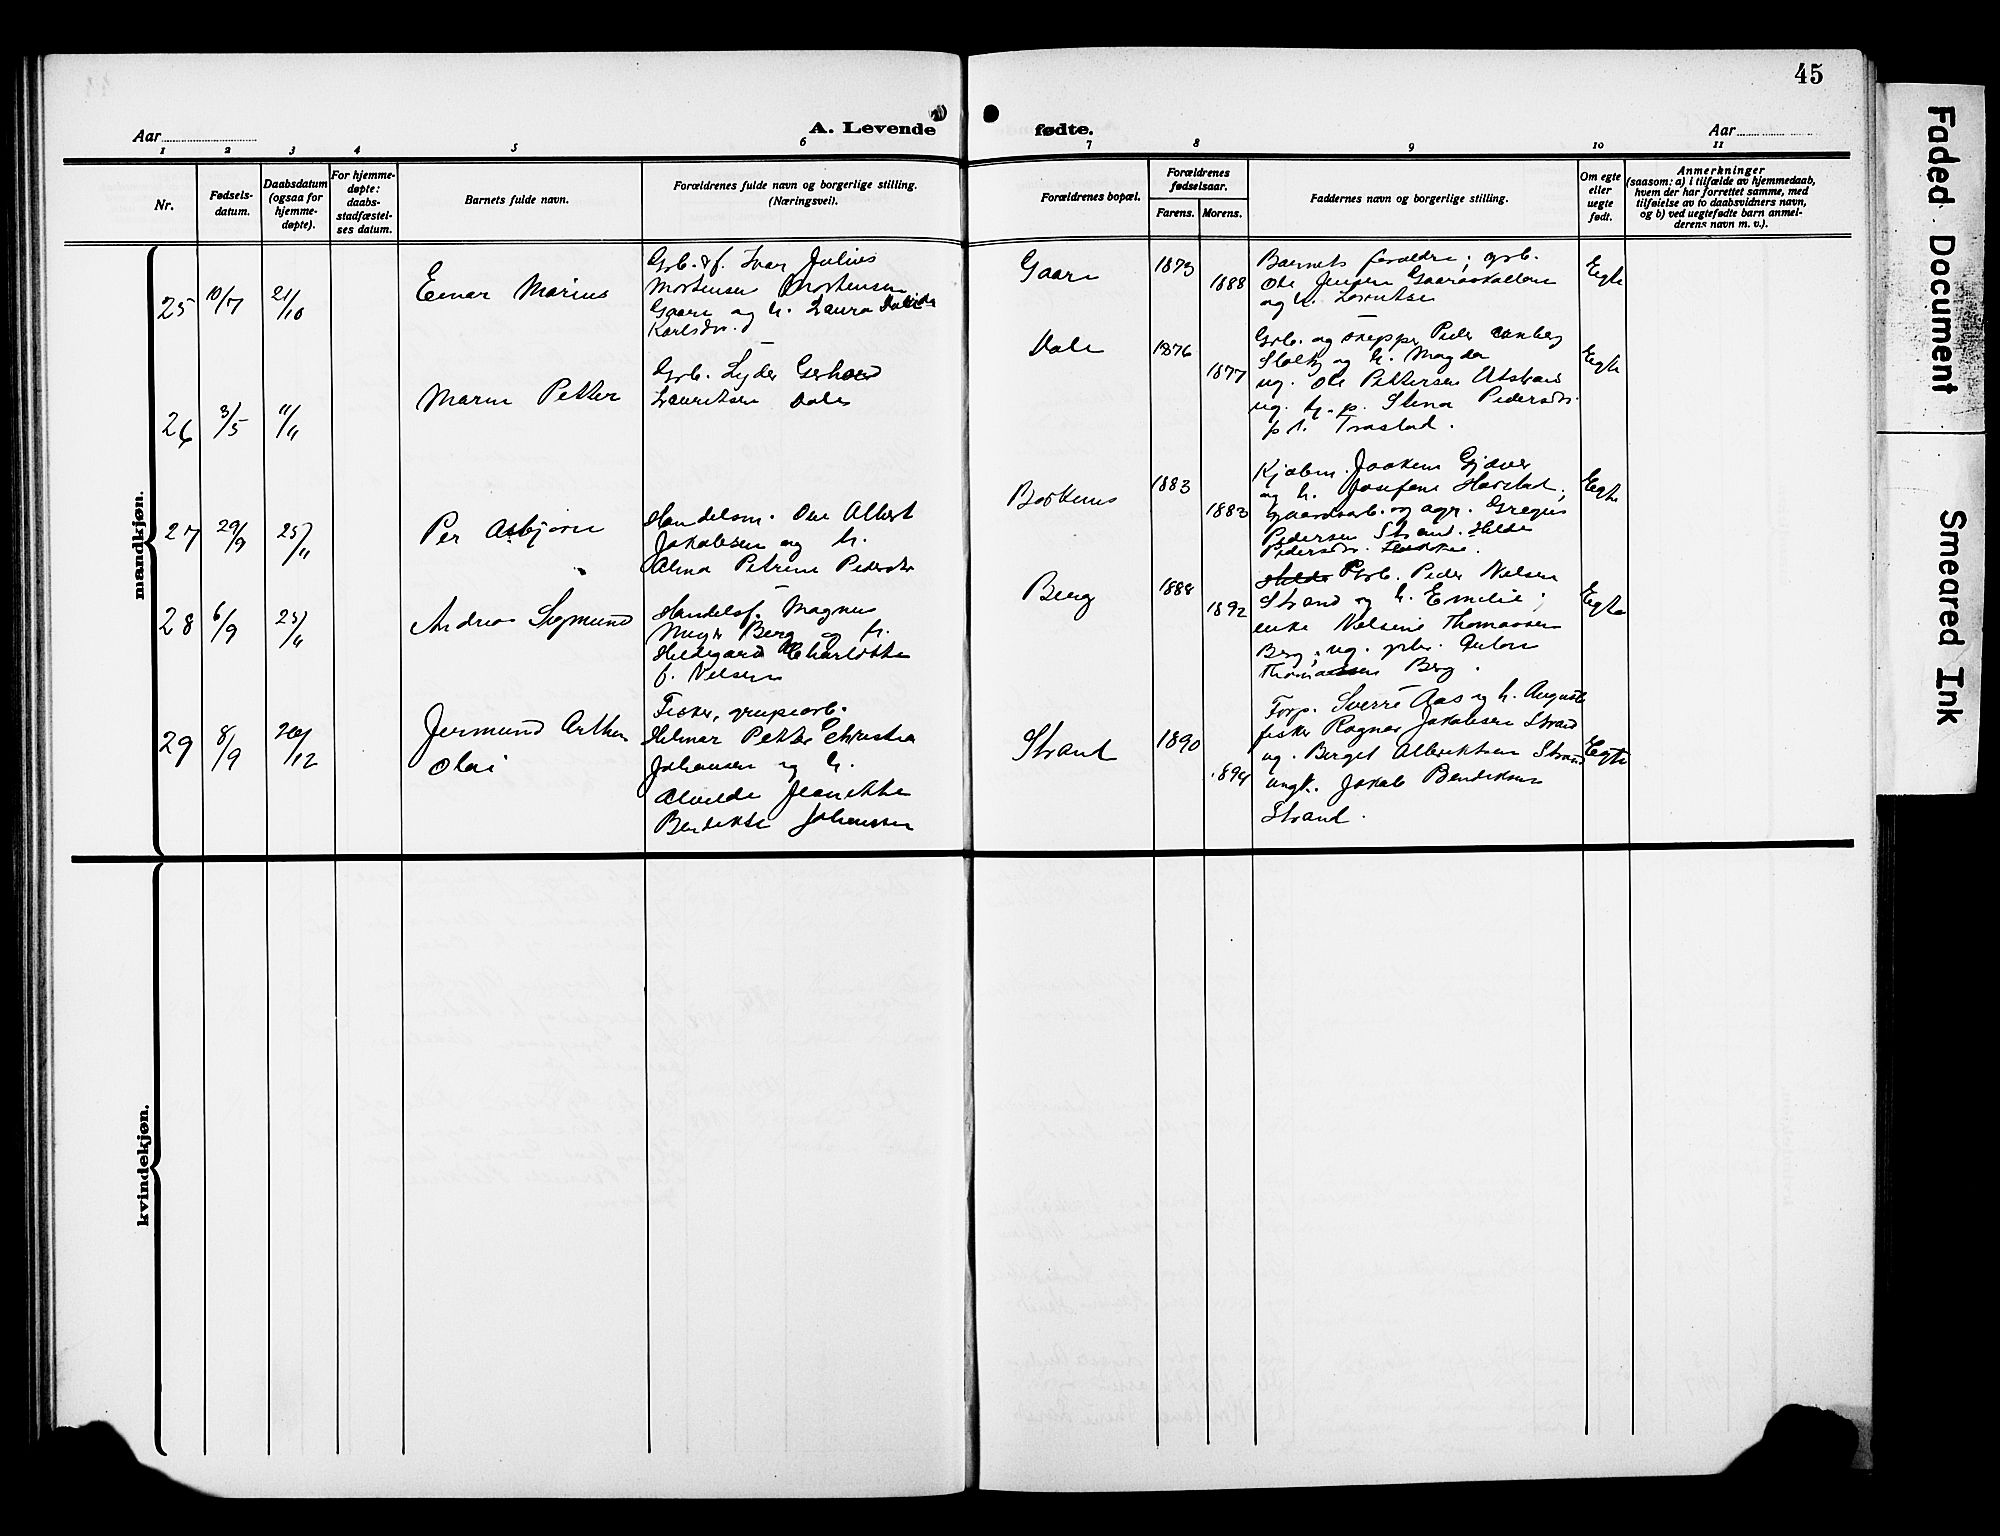 45
Aar
A. Levende
fødte.
Aar
1 2 3 4 5 6 7 8 9 10 11
Nr.
Fødsels-
datum.
Daabsdatum
(ogsaa for
hjemme-
døpte).
For hjemme-
døpte:
daabs-
stadfæstel-
ses datum.
Barnets fulde navn.
Forældrenes fulde navn og borgerlige stilling.
(Næringsvei).
Forældrenes bopæl.
Forældrenes
fødselsaar.
Farens. Morens.
Faddernes navn og borgerlige stilling.
Om egte
eller
uegte
født.
Anmerkninger
(saasom: a) i tilfælde av hjemmedaab,
hvem der har forrettet samme, med
tilføielse av to daabsvidners navn,
og b) ved uegtefødte barn anmel-
derens navn m. v.).
mandkjøn.
25 10/7 21/10
Einar Marius
Grb. & f. Ivar Julius
Mortensen Mortensen
Gaare og h. Laura
Karlsdr.
Gaare
1873
1888
Barnets forældre; grb.
Ole Jørgen
og h.
Egte
26 3/5 11/11
Marin Petter
Grb. Lyder Gerhard
Lauritsen Dale
Dale
1876
1877
Grb. og skipper Peder
Stoltz og h. Magda
ug. Ole Pettersen
ug. h. p. Stina Pedersdr.
p. t. Trastad.
Egte
27 29/9 25/11
Per Asbjørn
Handelsm. Ole Albert
Jakobsen og h.
Alma Petrine Pedersdr
Borkenes
1883
1883
Kjøbm. Joakim Gjæver
og h. Josefine Harstad;
gaardsarb. og agr. Gregus
Pedersen Strand. Hilda
Pedersdr.
Egte
28 6/9 25/11
Andreas Sigmund
Handelsf. Magnus
Berg og h.
Hildegard Charlotte
f. Nilsen
Berg
1888
1892
Grb. Peder Nilsen
Strand og h. Emelie;
enke Nilsine Thomassen
Berg; ug. grbr.
Thomassen Berg.
Egte
29 8/9 26/12
Jermund Arthur
Olai
Fisker, grubearb.
Hilmar Petter Christian
Johansen og h.
Alvilde Jeanette
Bendikte Johansen
Strand
1890
1894
Forp. Sverre Aas og h. Auguste
fisker Ragnar Jakobsen Strand
ug. Berget Albriktsen Strand
ungk. Jakob Bendiksen
Strand.
Egte
kvindekjøn.
Faded Document
Smeared Ink